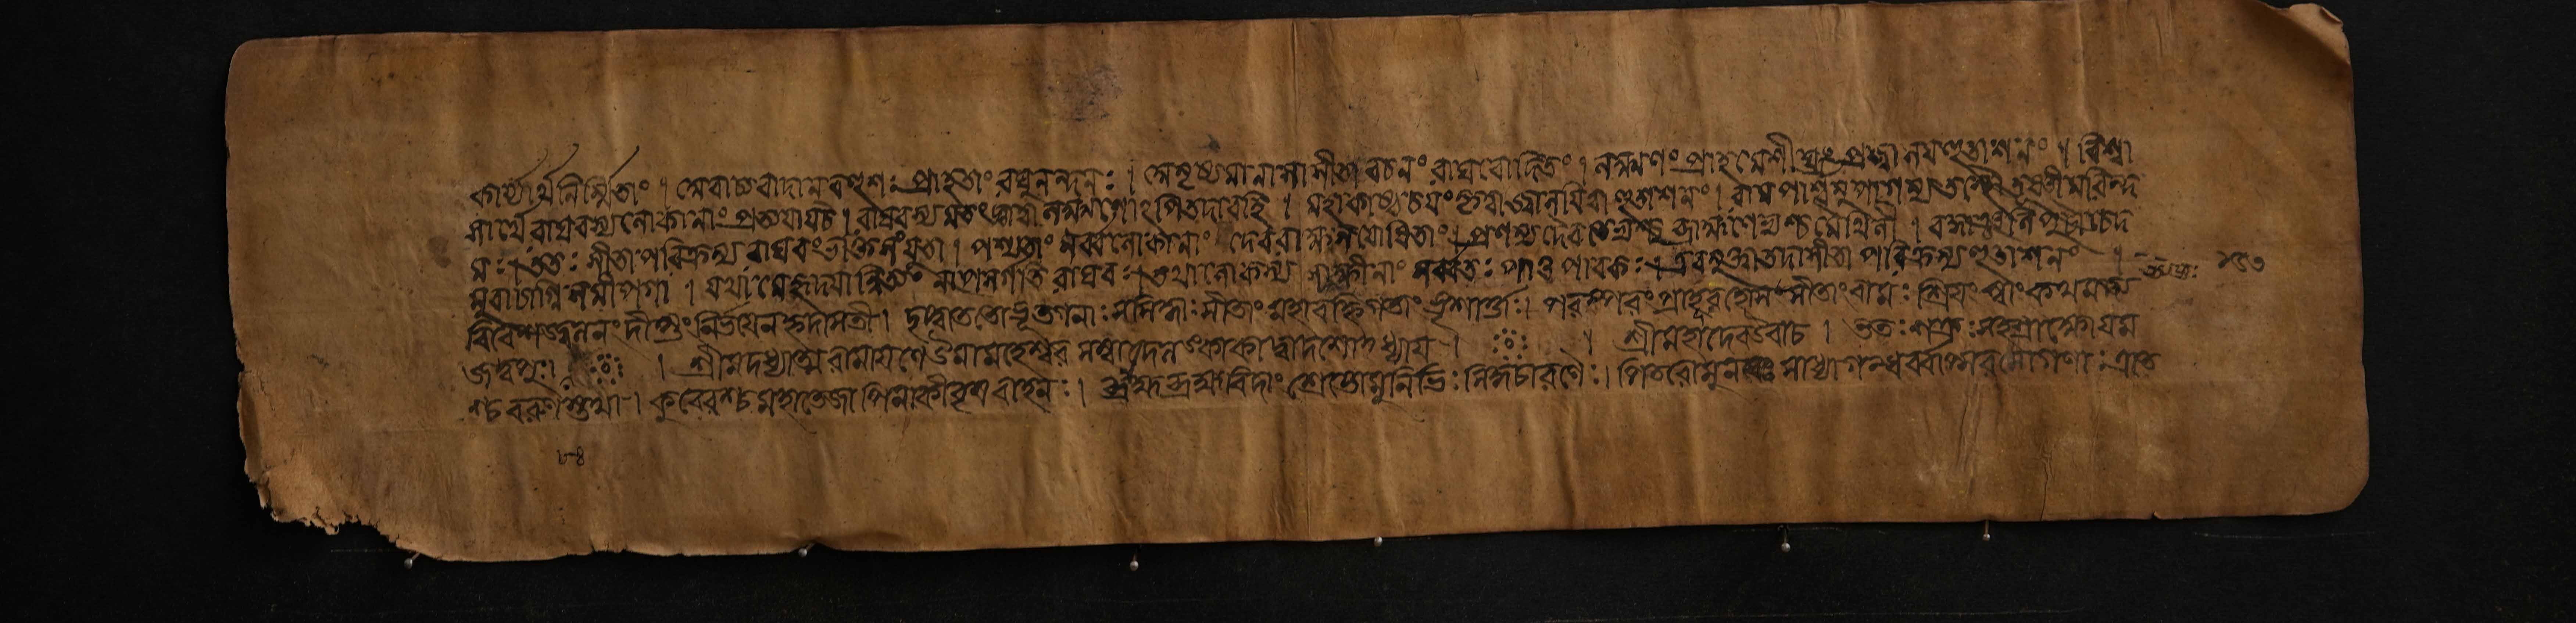 কার্য্যার্থনির্ম্মিতাং । অবাচ্যবাদানবহুশঃ প্রাহতাং রঘুনন্দনঃ । অমৃষ্যমানাসাসীতা বচনং রাঘবোদিতং । লক্ষ্মণং প্রাহমেশীঘ্রং প্রজ্বালয়হুতাশনং । বিশ্বা
সার্থং রাঘবস্য লোকানাং প্রত্যয়ায়চ । রাঘবস্য মতং জ্ঞাত্বা লক্ষ্মণোঽপিতদাবহি । মহাকাষ্ঠচয়ং কৃত্বাজ্বালয়িত্বাহুতাশনং । রামপার্শ্বমুপাগম্য তস্থৌতূষ্ণীমরিন্দ
মঃ । ততঃ সীতাপরিক্রম্য রাঘবং ভক্তিসংযুতা । পশ্যতাং সর্ব্বলোকানাং দেবরাক্ষসযোষিতাং । প্রণম্যদেবতেভ্যশ্চ ব্রাহ্মণেভ্যশ্চমৈথিলী । বদ্ধাঞ্জলিপুটাচেদ
মুবাচাগ্নিসমীপগা । যথামেহৃদয়ংনিত্যং নাপসর্পতি রাঘবাৎ । তথালোকস্য সাক্ষীমাং সর্ব্বতঃ পাতু পাবকঃ । এবমুক্ত্বাতদাসীতা পরিক্রম্যহুতাশনং ।
বিবেশজ্বলনংদীপ্তং নির্ভয়েনহৃদাসতী । দৃষ্ট্বাততোভূতগনাঃ সসিদ্ধাঃ সীতাং মহাবহ্নিগতাং ভৃশার্ত্তাঃ । পরস্পরংপ্রাহুরহোসসীতাংরামঃ শ্রিয়ং স্বাংকথমত্য
জদ্বপুঃ । । শ্রীমদধ্যাত্মরামায়ণে উমামহেশ্বর সম্বাদে লঙ্কাকাণ্ডে দ্বাদশোঽধ্যায় । । শ্রীমহাদেবউবাচ । ততঃ শক্রঃ সহস্রাক্ষোযম
শ্চ বরুণস্তথা । কুবেরশ্চমহাতেজাপিনাকীবৃষবাহনঃ । ব্রহ্মাব্রহ্মবিদাং শ্রেষ্ঠোমুনিভিঃ সিদ্ধচারণৈঃ । পিতরোমুনয়ঃ সাধ্যাগন্ধর্ব্বাপ্সরসোগণাঃ এতে
৮৪